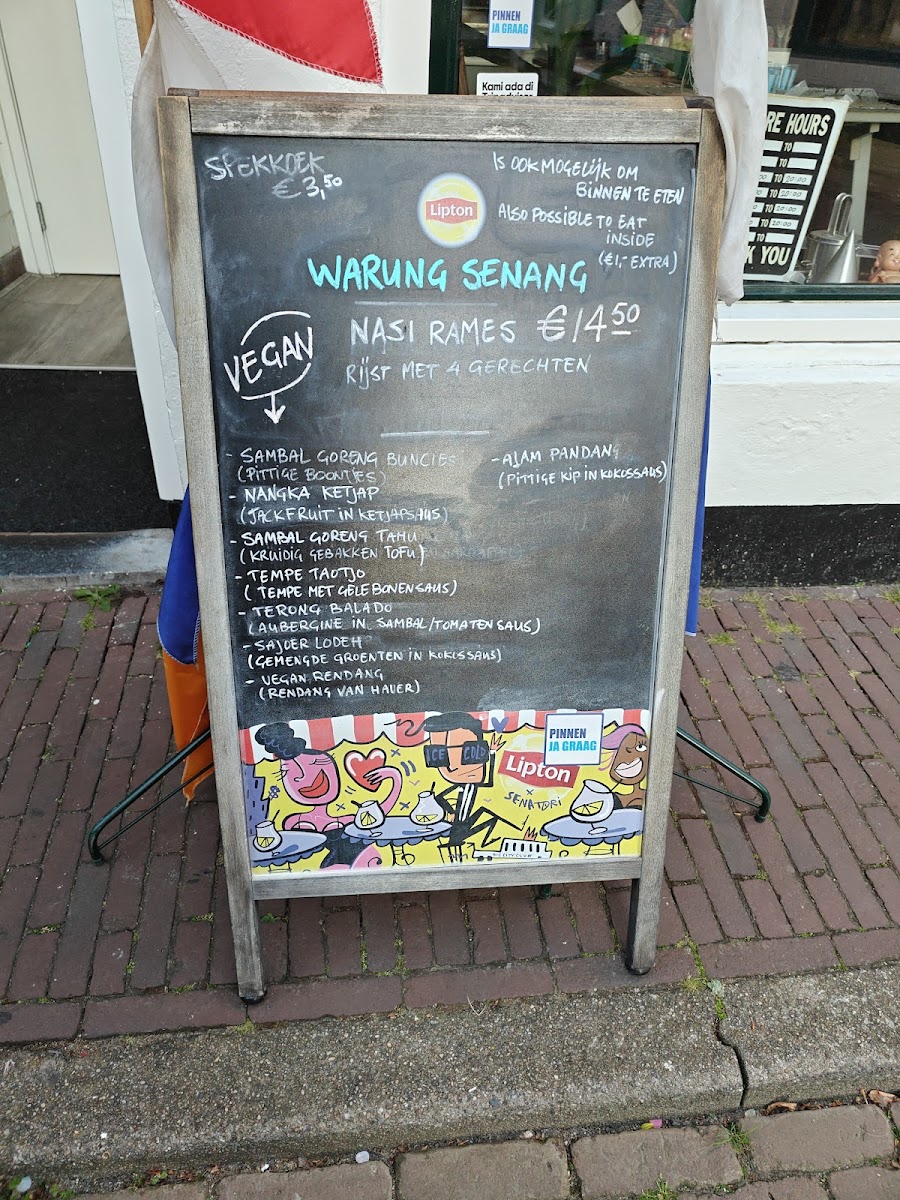 PINNEN
JA GRAAG
Kami ada di
RE HOURS
TO
TO
TO 20:00
TO 20:00
TO 20:00
TO 20:00
K YOU
SPEKKOEK
€3,50
Lipton
IS OOK MOGELIJK OM
BINNEN TE ETEN
ALSO POSSIBLE TO EAT
INSIDE
(€1,- EXTRA)
WARUNG SENANG
NASI RAMES €14 50
RIJST MET 4 GERECHTEN
VEGAN
- SAMBAL GORENG BUNCIES
(PITTIGE BOONTJES)
- NANGKA KETJAP
(JACKFRUIT IN KETJAPSAUS)
- SAMBAL GORENG TAHU
(KRUIDIG GEBAKKEN TOFU)
- TEMPE TAOTJO
(TEMPE MET GELE BONENSAUS)
- TERONG BALADO
(AUBERGINE IN SAMBAL/TOMATENSAUS)
- SAJOER LODEH
(GEMENGDE GROENTEN IN KOKOSSAUS)
- VEGAN RENDANG
(RENDANG VAN HAVER)
- AJAM PANDANG
(PITTIGE KIP IN KOKOSSAUS)
ICE COLD
Lipton
x
SENATORI
PINNEN
JA GRAAG